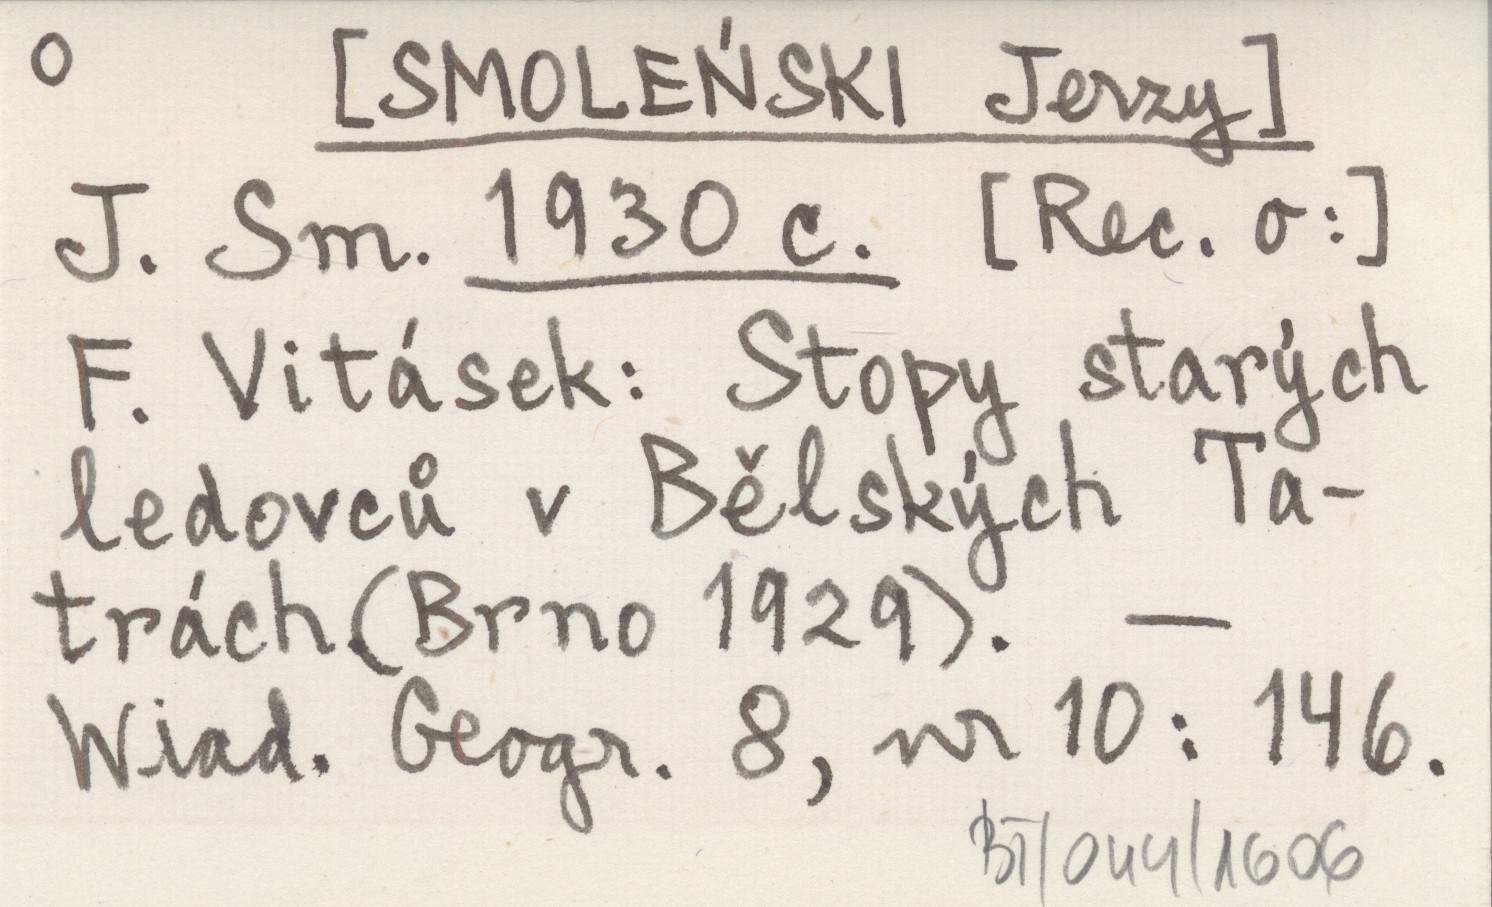 o [SMOLEŃSKI Jerzy]
J. Sm. 1930 c. [Rec. o:]
F. Vitásek: Stopy starých
ledovců v Bělských Ta-
trách. (Brno 1929). —
Wiad. Geogr. 8, nr 10: 146.
BT/044/1606